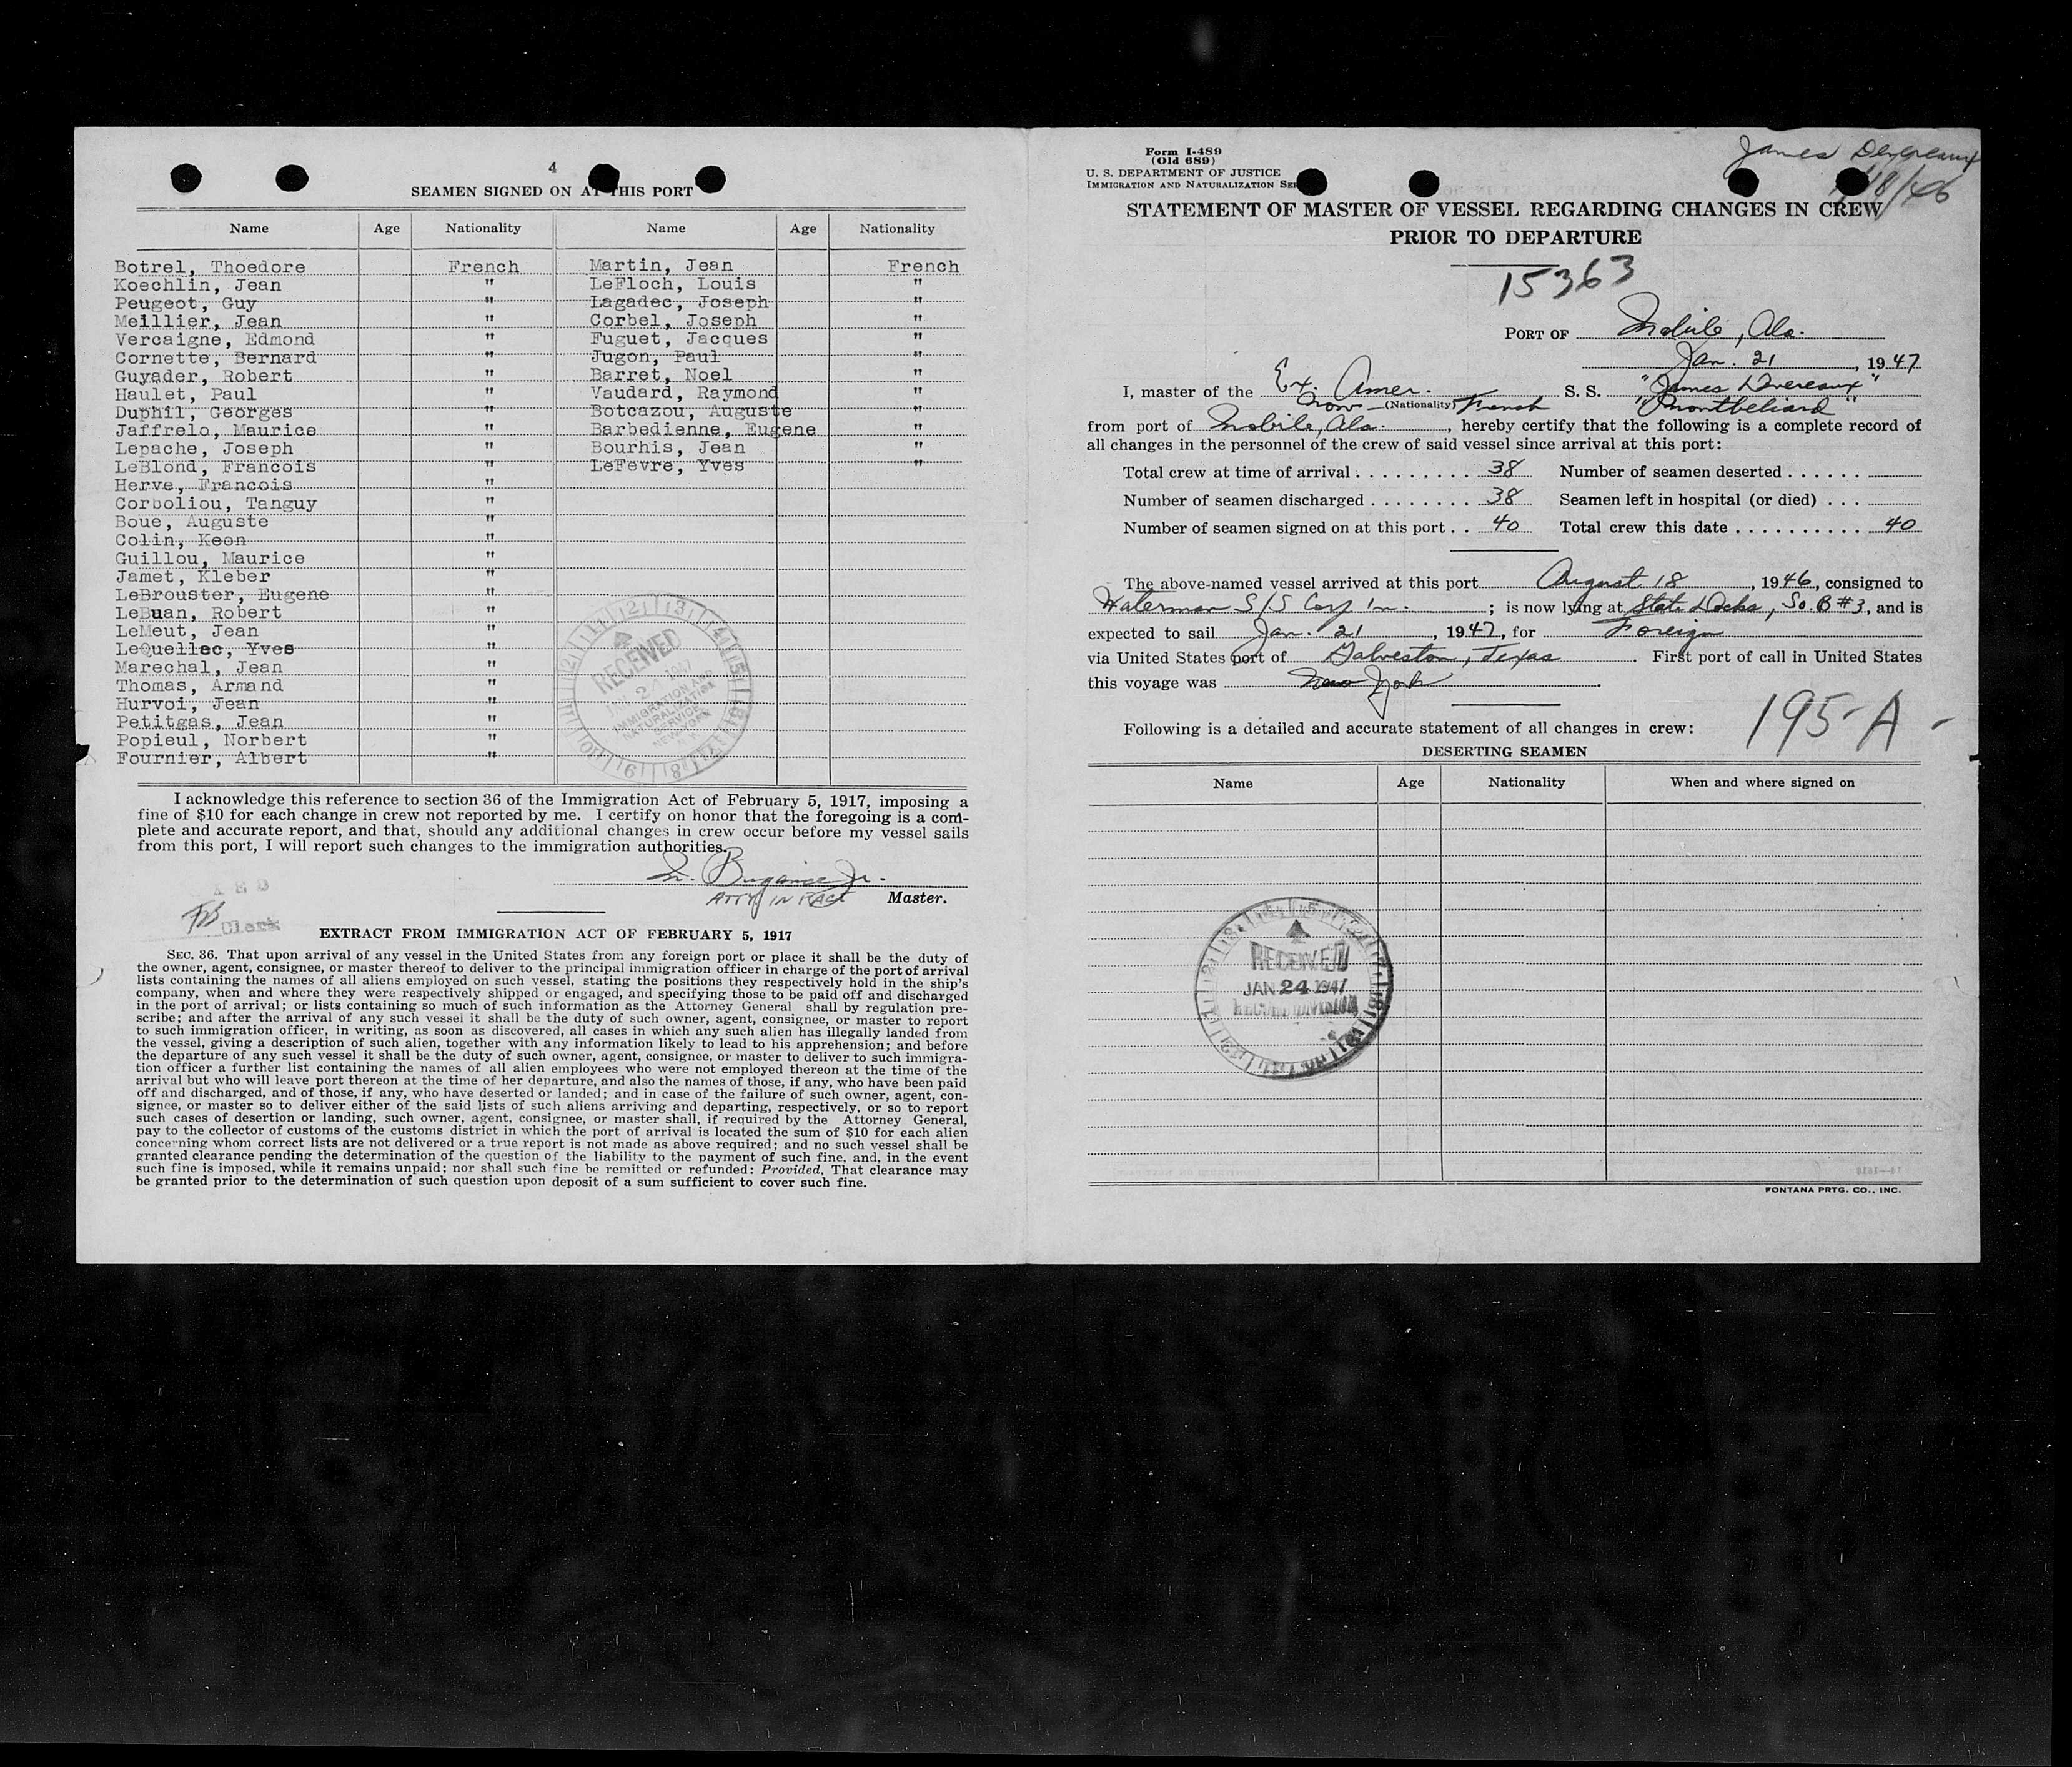 4
SEAMEN SIGNED ON AT THIS PORT
Name Age Nationality Name Age Nationality
Botrel, Thoedore French Martin, Jean French
Koechlin, Jean " LeFloch, Louis "
Peugeot, Guy " Lagadec, Joseph "
Meillier, Jean " Corbel, Joseph "
Vercaigne, Edmond " Fuguet, Jacques "
Cornette, Bernard " Jugon, Paul "
Guyader, Robert " Barret, Noel "
Haulet, Paul " Vaudard, Raymond "
Duphil, Georges " Botcazou, Auguste "
Jaffrelo, Maurice " Barbedienne, Eugene "
Lepache, Joseph " Bourhis, Jean "
LeBlond, Francois " LeFevre, Yves "
Herve, Francois "
Corboliou, Tanguy "
Boue, Auguste "
Colin, Keon "
Guillou, Maurice "
Jamet, Kleber "
LeBrouster, Eugene "
LeBuan, Robert "
LeMeut, Jean "
LeQuellec, Yves "
Marechal, Jean "
Thomas, Armand "
Hurvoi, Jean "
Petitgas, Jean "
Popieul, Norbert "
Fournier, Albert "
RECEIVED
24 1947
IMMIGRATION AND
NATURALIZATION
SERVICE
NEW YORK
I acknowledge this reference to section 36 of the Immigration Act of February 5, 1917, imposing a
fine of $10 for each change in crew not reported by me. I certify on honor that the foregoing is a com-
plete and accurate report, and that, should any additional changes in crew occur before my vessel sails
from this port, I will report such changes to the immigration authorities.
Jr.
ATTY IN FACT Master.
Clerk
EXTRACT FROM IMMIGRATION ACT OF FEBRUARY 5, 1917
SEC. 36. That upon arrival of any vessel in the United States from any foreign port or place it shall be the duty of
the owner, agent, consignee, or master thereof to deliver to the principal immigration officer in charge of the port of arrival
lists containing the names of all aliens employed on such vessel, stating the positions they respectively hold in the ship's
company, when and where they were respectively shipped or engaged, and specifying those to be paid off and discharged
in the port of arrival; or lists containing so much of such information as the Attorney General shall by regulation pre-
scribe; and after the arrival of any such vessel it shall be the duty of such owner, agent, consignee, or master to report
to such immigration officer, in writing, as soon as discovered, all cases in which any such alien has illegally landed from
the vessel, giving a description of such alien, together with any information likely to lead to his apprehension; and before
the departure of any such vessel it shall be the duty of such owner, agent, consignee, or master to deliver to such immigra-
tion officer a further list containing the names of all alien employees who were not employed thereon at the time of the
arrival but who will leave port thereon at the time of her departure, and also the names of those, if any, who have been paid
off and discharged, and of those, if any, who have deserted or landed; and in case of the failure of such owner, agent, con-
signee, or master so to deliver either of the said lists of such aliens arriving and departing, respectively, or so to report
such cases of desertion or landing, such owner, agent, consignee, or master shall, if required by the Attorney General,
pay to the collector of customs of the customs district in which the port of arrival is located the sum of $10 for each alien
concerning whom correct lists are not delivered or a true report is not made as above required; and no such vessel shall be
granted clearance pending the determination of the question of the liability to the payment of such fine, and, in the event
such fine is imposed, while it remains unpaid; nor shall such fine be remitted or refunded: Provided, That clearance may
be granted prior to the determination of such question upon deposit of a sum sufficient to cover such fine.
James Devereaux
18/46
Form I-489
(Old 689)
U. S. DEPARTMENT OF JUSTICE
IMMIGRATION AND NATURALIZATION SER
STATEMENT OF MASTER OF VESSEL REGARDING CHANGES IN CREW
PRIOR TO DEPARTURE
15363
PORT OF Mobile, Ala.
Jan. 21, 1947
I, master of the Ex. Amer. S. S. "James Devereaux"
Now (Nationality) French "Montbeliard"
from port of Mobile, Ala., hereby certify that the following is a complete record of
all changes in the personnel of the crew of said vessel since arrival at this port:
Total crew at time of arrival 38 Number of seamen deserted
Number of seamen discharged 38 Seamen left in hospital (or died)
Number of seamen signed on at this port 40 Total crew this date 40
The above-named vessel arrived at this port August 18, 1946, consigned to
Waterman S/S Corp In. ; is now lying at State Docks, So. B #3, and is
expected to sail Jan. 21, 1947, for Foreign
via United States port of Galveston, Texas. First port of call in United States
this voyage was New York.
195-A-
Following is a detailed and accurate statement of all changes in crew:
DESERTING SEAMEN
Name Age Nationality When and where signed on
RECEIVED
JAN 24 1947
RECORD DIVISION
FONTANA PRTG. CO., INC.